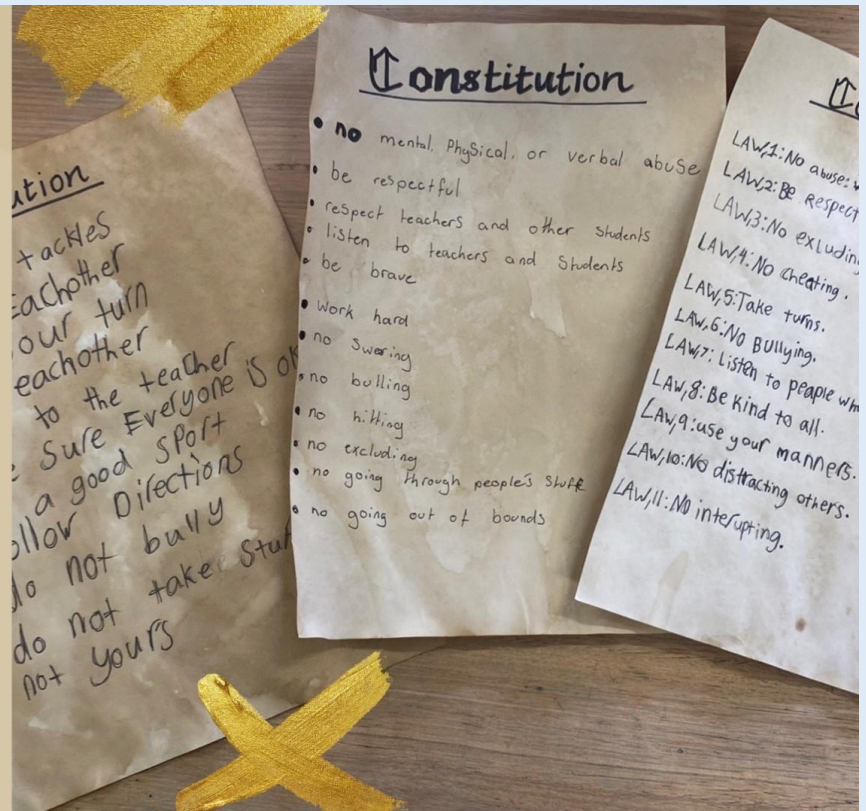 ution
tackles
eachother
our turn
eachother
to the teacher
Sure Everyone is ok
a good sport
ollow Directions
do not bully
do not take stuf
not yours
Constitution
• no mental, physical, or verbal abuse
• be respectful
• respect teachers and other students
• listen to teachers and students
• be brave
• work hard
• no swering
• no bulling
• no hitting
• no excluding
• no going through people's stuff
• no going out of bounds
Co
LAW,1:No abuse:
LAW,2:Be Respect
LAW,3:No excludin
LAW,4:No cheating.
LAW,5:Take turns.
LAW,6:NO BUllying.
LAW,7: Listen to peaple wh
LAW,8:Be kind to all.
LAW,9:use your manners.
LAW,10:No disttracting others.
LAW,11:NO interupting.